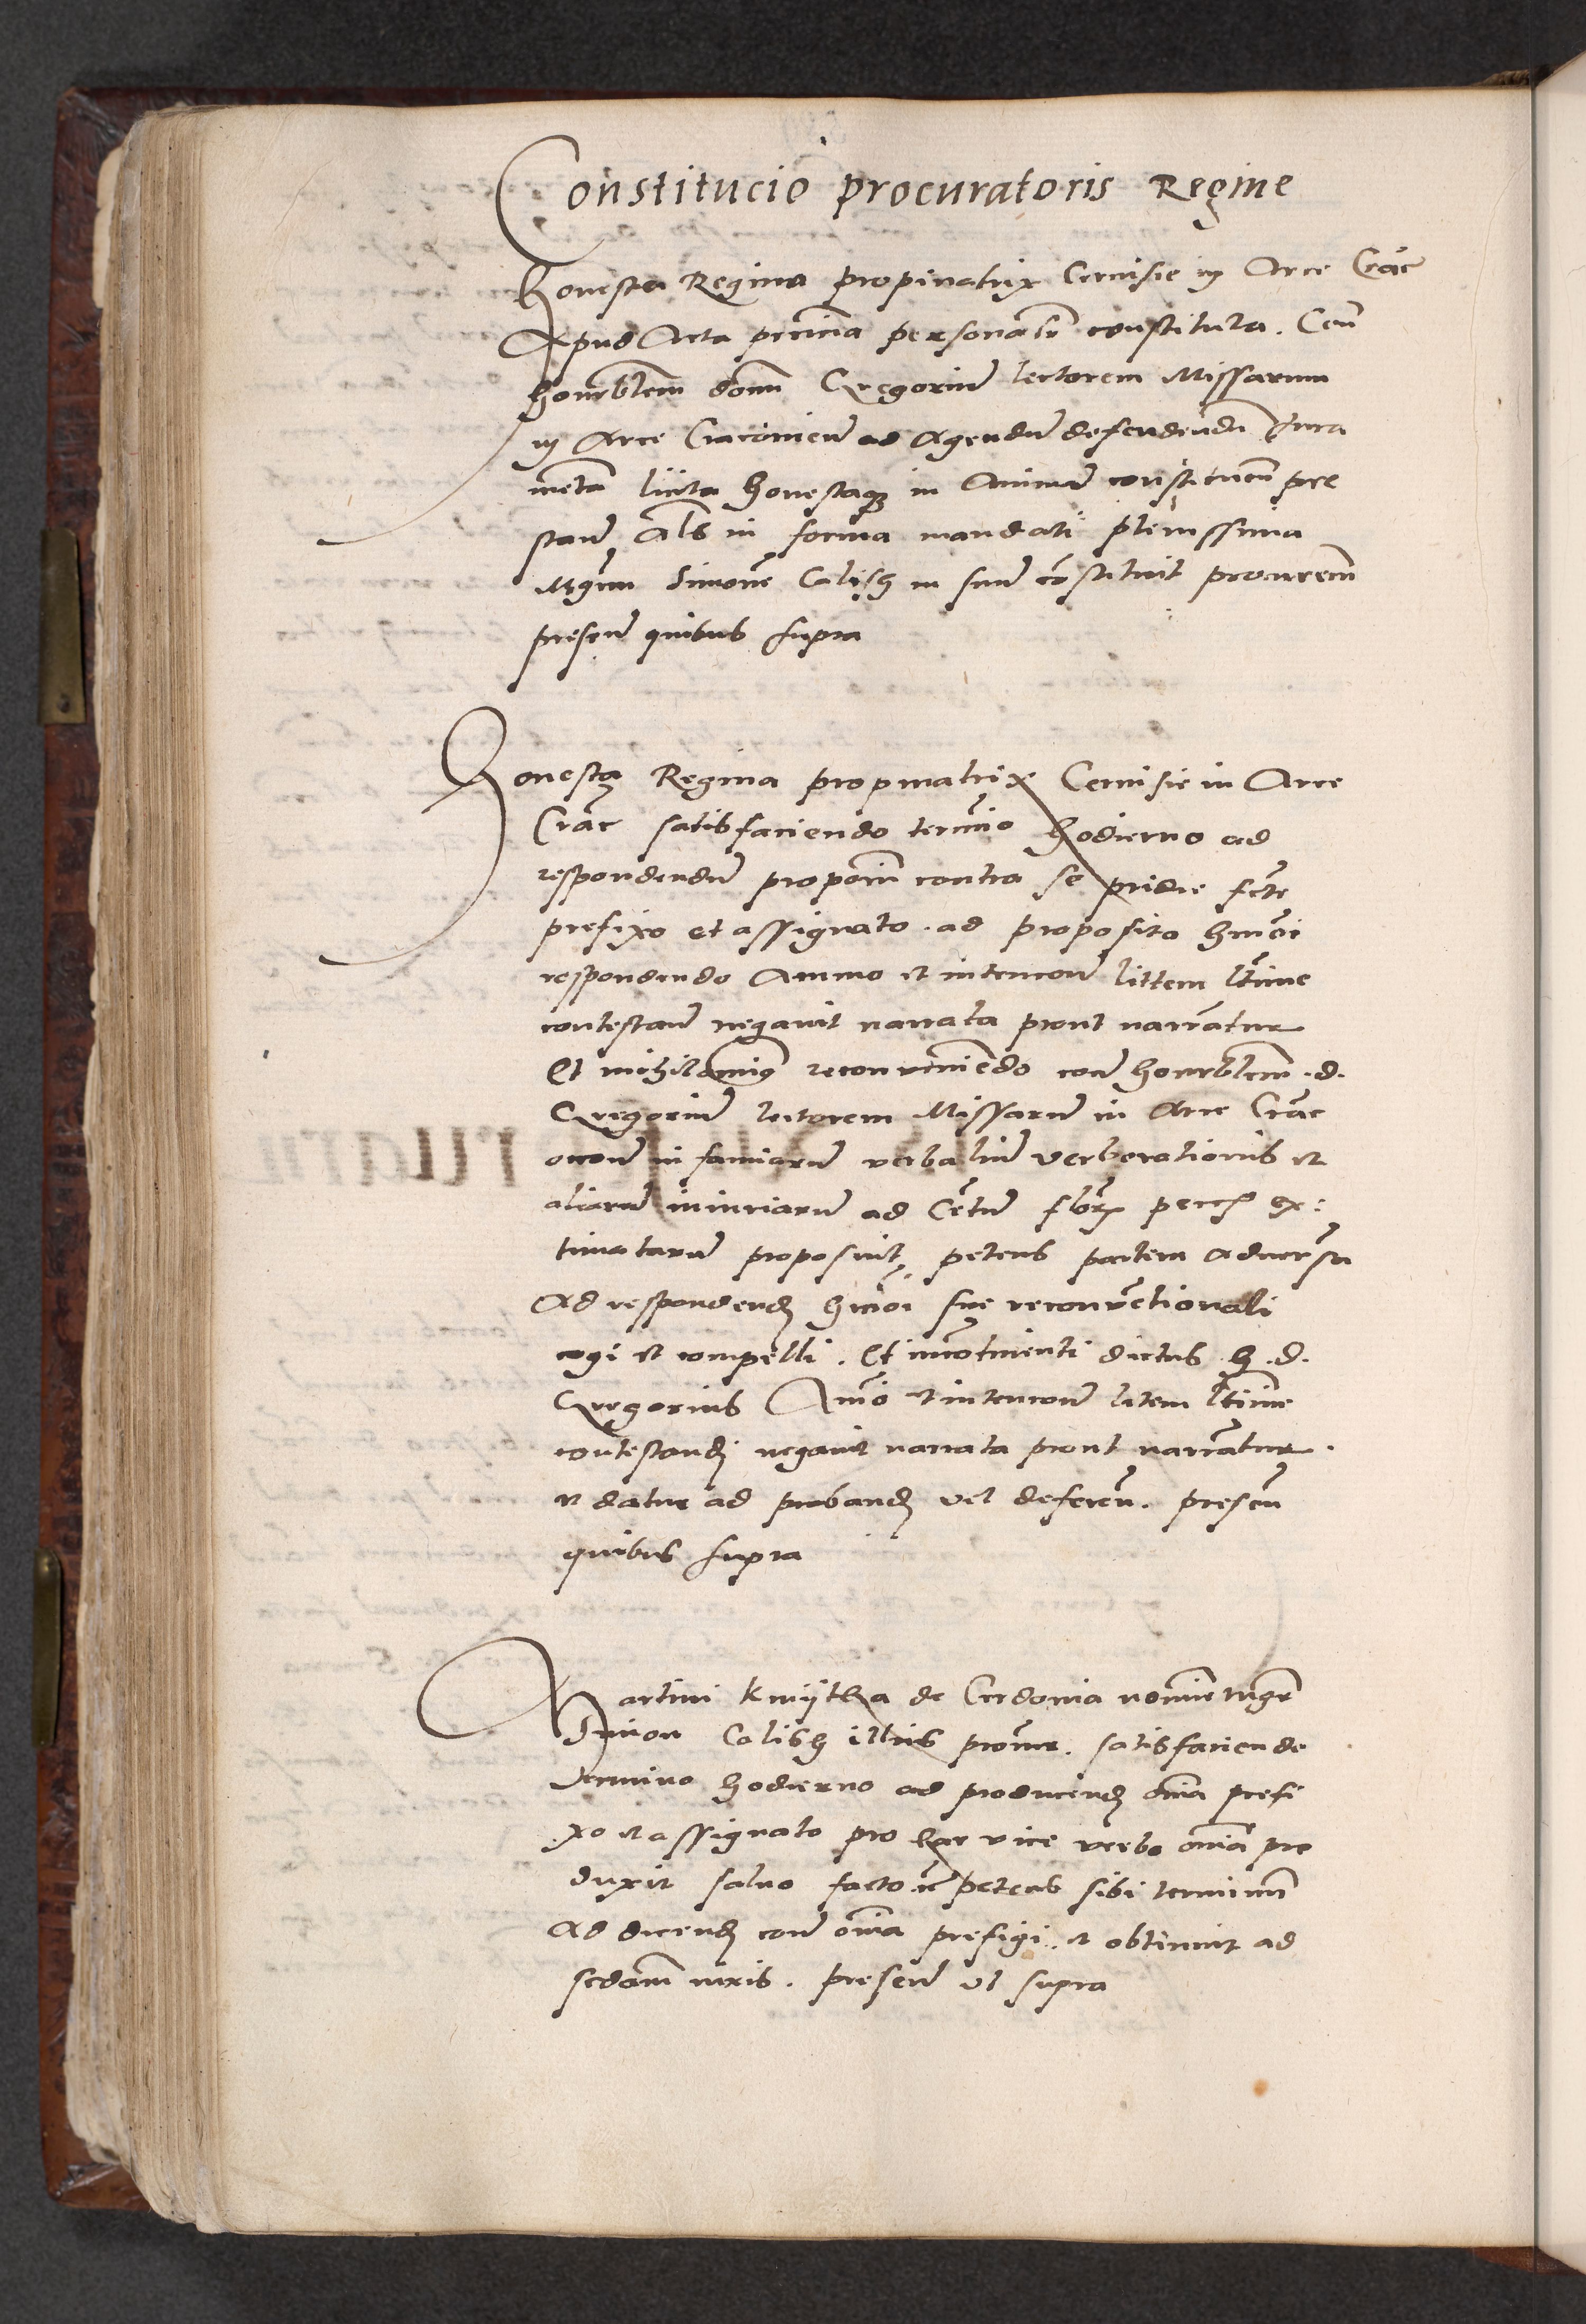 Constitucio procuratoris Regine
Honesta Regina propinatrix Cervisie in Arce Crac
Apud Acta preńcia personalr constituta. Contra
honorblem domn Gregoriu lectorem Missarum
in Arce Cracovien ad Agendu defendendu Jura
menta licita honestaque in Animã constituen pre
stan Als in forma mandati plenissima
Mgrum Simone Calisch in suu cõstituit procurem
presen quibus supra
Honesta Regina propinatrix Cervisie in Arce
Crac satisfaciendo termino hodierno ad
respondendu proponi contra se pridie fcte
prefixo et assignato. ad proposita hmõi
respondendo Animo et intencon littem ltime
contestan negavit narrata prout narrãtur
Et nihilominus reconveniendo con honorblem .d.
Gregoriu lectorem Missaru in Arce Crac
occon infamiaru verbaliu verberationis et
aliaru iniuriaru ad Cetu flor pecch ex:
timataru proposuit petens partem adversa
Ad respondend hmõi sue reconvẽtionali
cogi et compelli . Et incõtinenti dictus .h .d.
Gregorius Animo et intencon litem ltime
contestandi negavit narrata prout narrãtur .
et datur ad proband vel deferen. presen
quibus supra
Martini kmijtha de Cerdonia nomine mgr
Simon Calisch illius procur. satisfaciendo
Termino hodierno ad producend omnia prefi
xo et assignato pro hac vice verbo omnia pro
duxit salvo facto petens sibi terminum
Ad dicend con omnia prefigi. et obtinuit ad
sedam iuris. presen ut supra